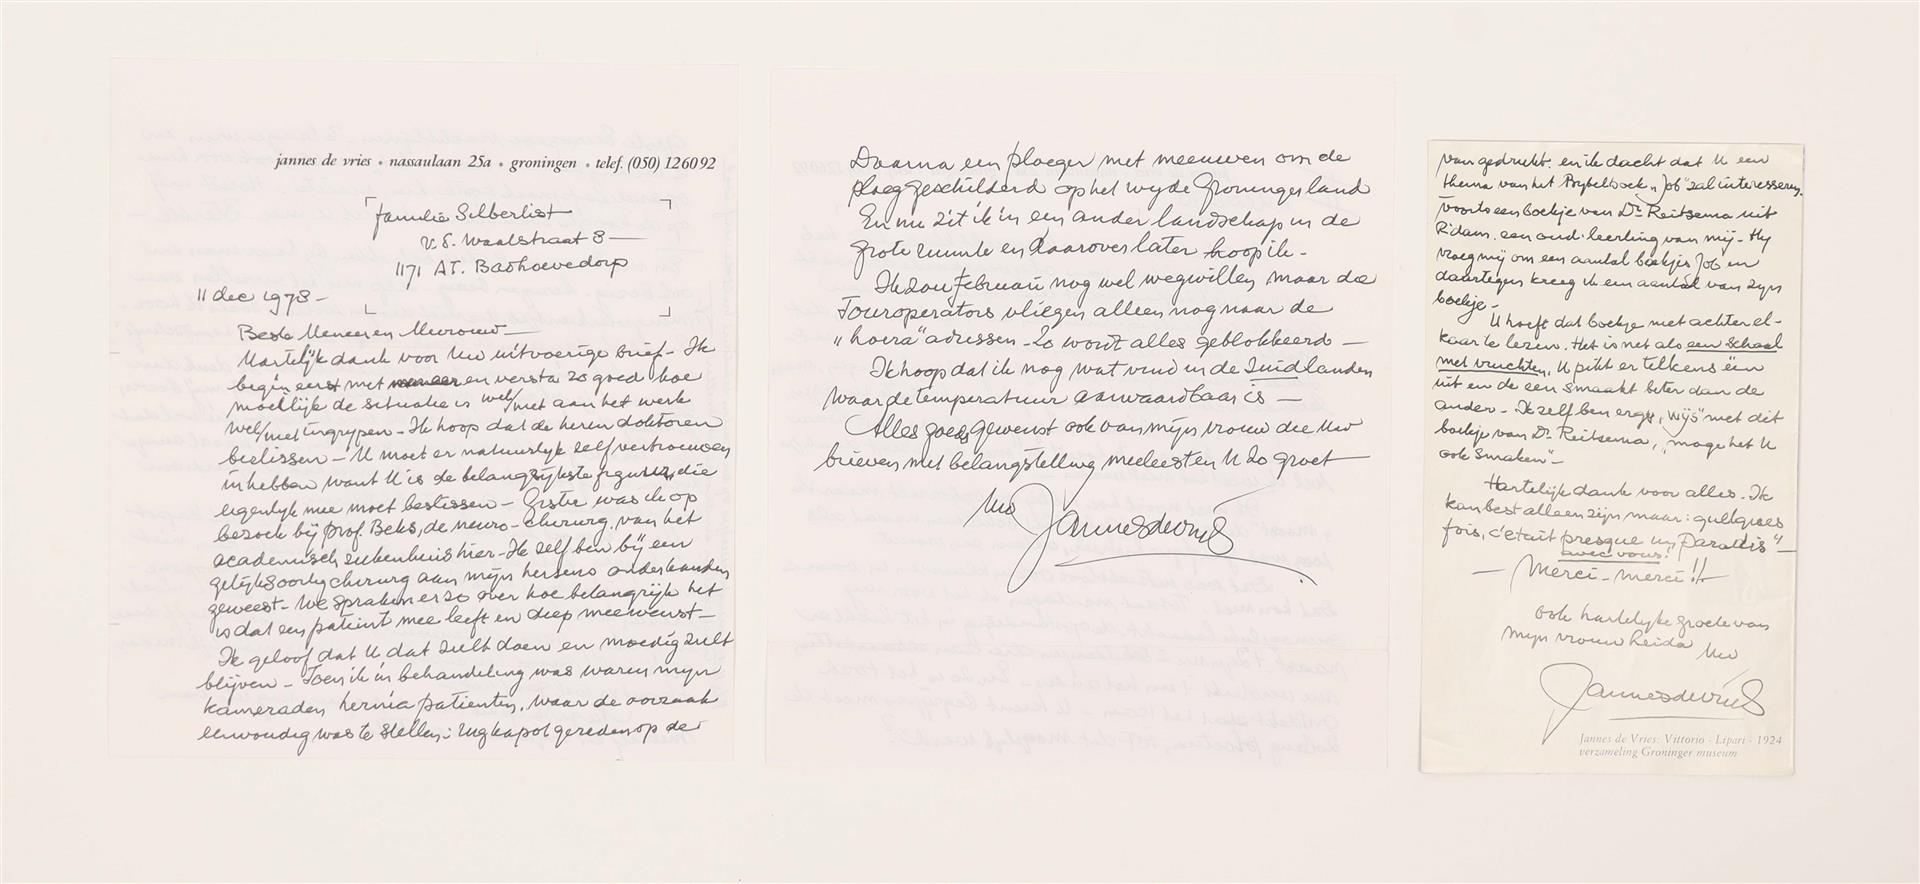 jannes de vries • nassaulaan 25a • groningen • telef. (050) 126092
familie Silberlist
v.S. Waalstraat 8 —
1171 AT. Badhoevedorp
11 dec 1978 —
Beste Meneer en Mevrouw —
Hartelijk dank voor Uw uitvoerige brief - Ik
begin eerst met meneer en versta zo goed hoe
moeilijk de situatie is wel/niet aan het werk
wel/niet ingrypen - Ik hoop dat de heren doktoren
beslissen - U moet er natuurlyk zelf vertrouwen
in hebben want U is de belangrykste figuur, die
eigenlyk mee moet beslissen - Gister was ik op
bezoek bij prof. Beks, de neuro-chirurg, van het
academisch ziekenhuis hier - Ik zelf ben bij een
gelijksoortig chirurg aan mijn hersens onderhanden
geweest - We spraken er zo over hoe belangrijk het
is dat een patient mee leeft en diep meewenst —
Ik geloof dat U dat zult doen en moedig zult
blijven - Toen ik in behandeling was waren mijn
kameraden hernia patienten, waar de oorzaak
eenvoudig was te stellen: rug kapot gereden op de
Daarna een ploeger met meeuwen om de
ploeg geschilderd op het wyde Groningerland
En nu zit ik in een ander landschap in de
grote ruimte en daarover later hoop ik -
Ik zou Februari nog wel weg willen, maar de
Touroperators vliegen alleen nog naar de
„hoera" adressen - Zo wordt alles geblokkeerd —
Ik hoop dat ik nog wat vind in de Zuidlanden
waar de temperatuur aanvaardbaar is —
Alles goeds gewenst ook van mijn vrouw die Uw
brieven met belangstelling meeleest en U zo groet —
Uw Jannes de Vries
van gedrukt. en ik dacht dat U een
thema van het Bybelboek „Job" zal interesseren.
Voorts een boekje van Dr Reitsema uit
R'dam. een oud-leerling van mij - Hy
vroeg mij om een aantal boekjes Job en
daartegen kreeg ik een aantal van zyn
boekje -
U hoeft dat boekje niet achter el-
kaar te lezen. Het is net als een schaal
met vruchten, U pikt er telkens één
uit en de een smaakt beter dan de
ander - Ik zelf ben erg „wijs" met dit
boekje van Dr Reitsema, „moge het U
ook smaken" -
Hartelijk dank voor alles. Ik
kan best alleen zijn maar: quelques
fois, c'était presque un „Paradis" —
avec vous!"
— Merci - merci!! —
ook hartelyke groete van
mijn vrouw Reida Uw
Jannes de Vries
Jannes de Vries: Vittorio - Lipari - 1924
verzameling Groninger museum